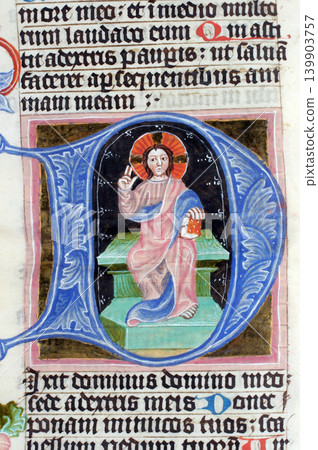 ore meo: et ī medio multo
rum laudabo eum Qm asti
tit adextris paupis: ut saluā
faceret apsequentibus ani
mam meam :
D
Ixit dominus domino meo
sede adextris meis Donec
ponam inimicos tuos: sca
bellum pedum tuoꝝ Uir
139903757